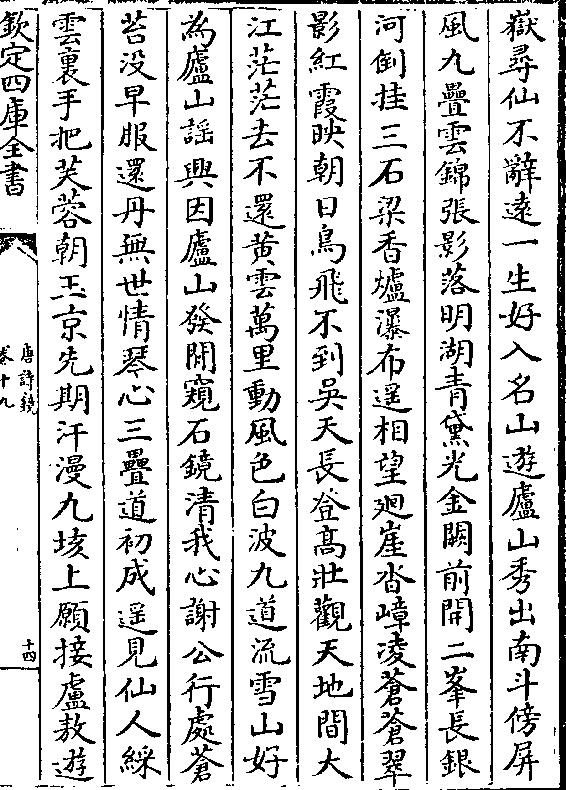 嶽尋仙不辭逺一生好入名山遊廬山秀出南斗傍屏
風九疊雲錦張影落明湖青黛光金闕前開二峯長銀
河倒挂三石梁香爐瀑布遥相望廻崖沓嶂凌蒼蒼翠
影紅霞映朝日鳥飛不到吳天長登高壯觀天地間大
江茫茫去不還黄雲萬里動風色白波九道流雪山好
為廬山謡興因廬山發閒窺石鏡清我心謝公行處蒼
苔没早服還丹無世情琴心三疊道初成遥見仙人綵
雲裏手把芙蓉朝玉京先期汗漫九垓上願接盧敖遊
欽定四庫全書
唐詩鏡
卷十九
十四